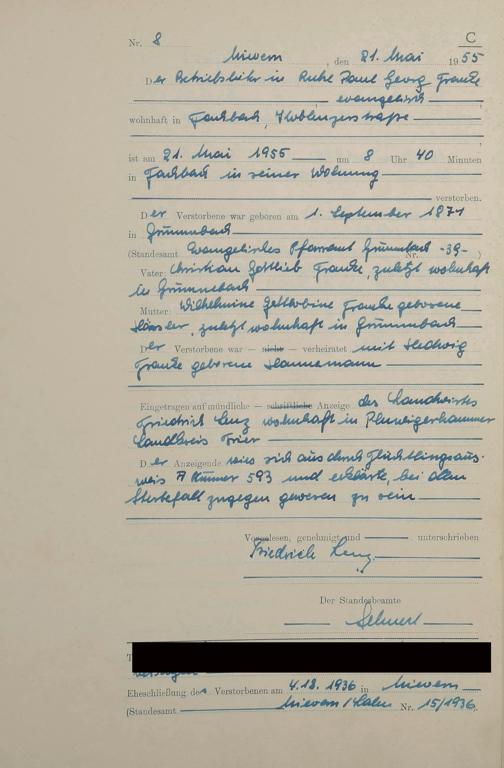 C
Nr. 8
Miesem, den 21. Mai 1955
Der Betriebsleiter in Ruhe Paul Georg Franke
evangelisch
wohnhaft in Fachbach, Koblenzerstraße
ist am 21. Mai 1955 um 8 Uhr 40 Minuten
in Fachbach in seiner Wohnung
verstorben.
Der Verstorbene war geboren am 1. September 1871
in
(Standesamt Evangelisches Pfarramt Nr. -39-)
Vater: Christian Gottlieb Franke, zuletzt wohnhaft
in
Mutter: Wilhelmine Franke geborene
zuletzt wohnhaft in
Der Verstorbene war – nicht – verheiratet mit Hedwig
Franke geborene Hannemann
Eingetragen auf mündliche – schriftliche Anzeige des Landwirts
Friedrich Lenz wohnhaft in
Landkreis Trier
Der Anzeigende wies sich aus durch Flüchtlingsaus-
weis A Nummer 593 und erklärte, bei dem
Sterbefall zugegen gewesen zu sein
Vorgelesen, genehmigt und unterschrieben
Friedrich Lenz
Der Standesbeamte
Eheschließung des Verstorbenen am 4.12.1936 in
(Standesamt Nr. 15/1936)